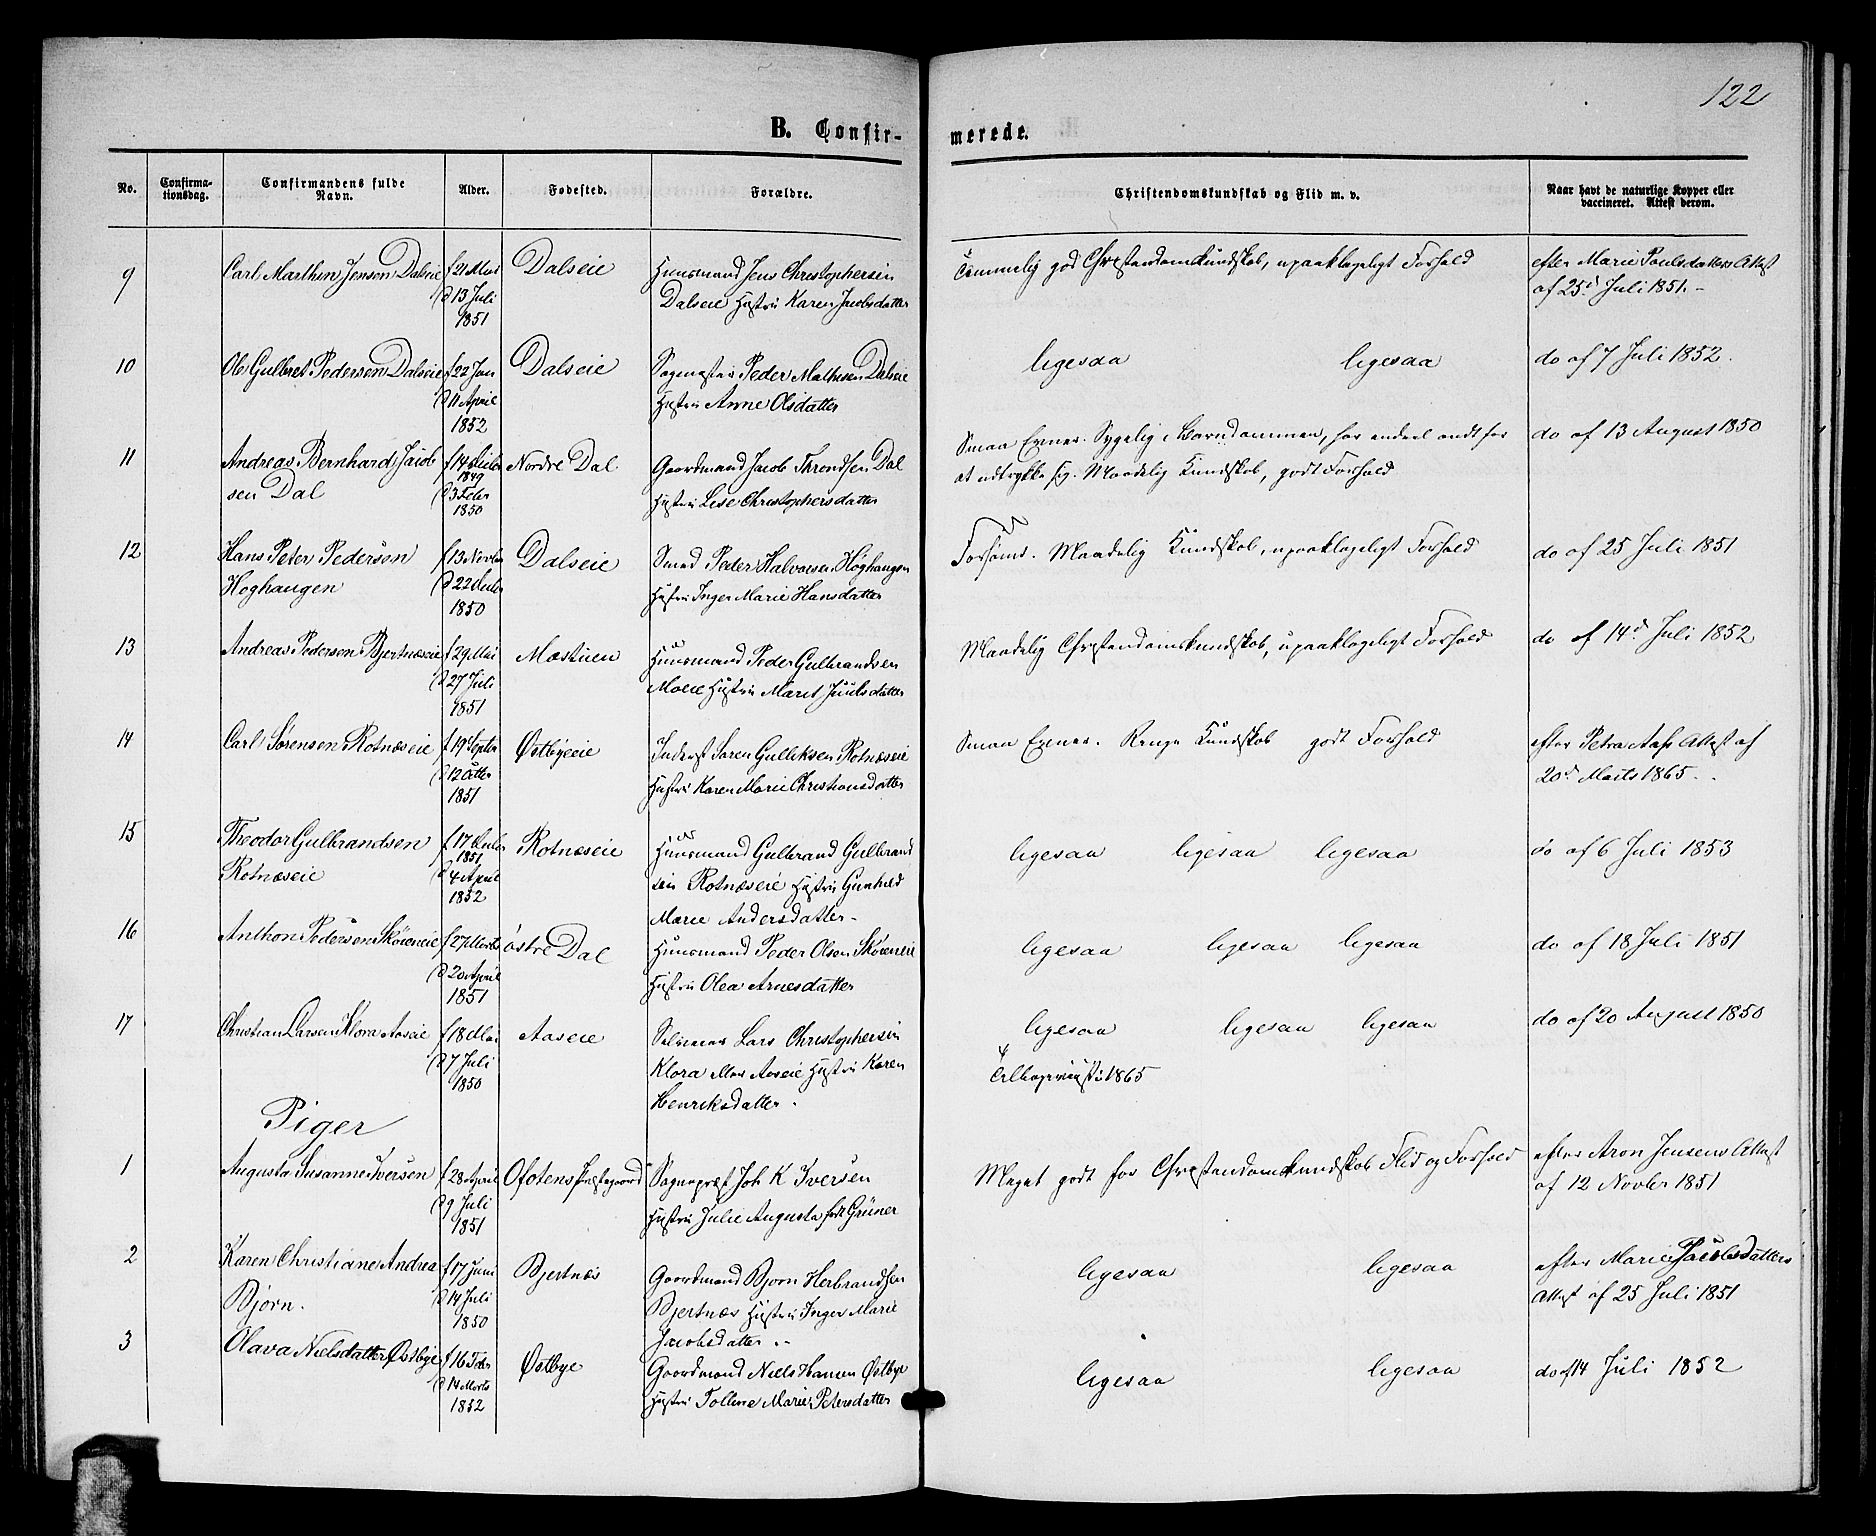 122
B. Confir-
merede.
No.
Confirma-
tionsdag.
Confirmandens fulde
Navn.
Alder.
Fødested.
Forældre.
Christendomskundskab og Flid m. v.
Naar havt de naturlige Kopper eller
vaccineret. Attest derom.
9
Carl Marthin Jensen Dalseie
f 21 Mai
13 Juli
1851
Dalseie
Huusmand Jens Christophersen
Dalseie Hustru Karen Jacobsdatter
Temmelig god Christendomskundskab, upaaklageligt Forhold
efter Marie Paulsdatters Attest
af 25d Juli 1851.
10
Ole Gulbret Pedersen Dalseie
f 22 Jan
11 April
1852
Dalseie
Sagmester Peder Mathesen Dalseie
Hustru Anne Olsdatter
ligesaa ligesaa
do af 7 Juli 1852.
11
Andreas Bernhard Jacob
sen Dal
f 14 Decbr
1849
3 Febr
1850
Nordre Dal
Gaardmand Jacob Throndsen Dal
Hustru Lise Christophersdatter
Smaa Evner. Sygelig i Barndommen, har endeel ondt for
at udtrykke sig. Maadelig Kundskab, godt Forhold
do af 13 August 1850
12
Hans Peter Pedersen
Høghaugen
f 13 Novbr
22 Decbr
1850
Dalseie
Smed Peder Halvorsen Høghaugen
Hustru Inger Marie Hansdatter
Forsømt. Maadelig Kundskab, upaaklageligt Forhold
do af 25 Juli 1851
13
Andreas Pedersen Bjertnæseie
f 29 Mai
27 Juli
1851
Mæstuen
Huusmand Peder Gulbrandsen
Moeie Hustru Maret Juulsdatter
Maadelig Christendomskundskab, upaaklageligt Forhold
do af 14d Juli 1852
14
Carl Sørensen Rotnæseie
f 19 Septbr
12 Octbr
1851
Østbyeeie
Inderst Søren Gulliksen Rotnæseie
Hustru Karen Marie Christiansdatter
Smaa Evner. Ringe Kundskab godt Forhold
efter Petra Aass Attest af
20d Marts 1865.
15
Theodor Gulbrandsen
Rotnæseie
f 17 Decbr
1851
4 April
1852
Rotnæseie
Huusmand Gulbrand Gulbrand
sen Rotnæseie Hustru Gunhild
Marie Andersdatter
ligesaa ligesaa ligesaa
do af 6 Juli 1853
16
Anthon Pedersen Skøieneie
f 27 Marts
20 April
1851
Østre Dal
Huusmand Peder Olsen Skøieneie
Hustru Olea Arnesdatter
ligesaa ligesaa ligesaa
do af 18 Juli 1851
17
Christian Larsen Klora Aaseie
f 18 Mai
7 Juli
1850
Aaseie
Selveier Lars Christophersen
Klora Aaseie Hustru Karen
Henriksdatter
ligesaa ligesaa ligesaa
Tilbageviist i 1865
do af 20 August 1850
Piger
1
Augusta Susanne Iversen
f 28 April
9 Juli
1851
Ofotens Præstegaard
Sognepræst Joh K Iversen
Hustru Julie Augusta født Grüner
Meget godt for Christendomskundskab Flid og Forhold
efter Aron Jensens Attest
af 12 Novbr 1851
2
Karen Christiane Andrea
Bjørn.
f 17 Juni
14 Juli
1850
Bjertnæs
Gaardmand Bjørn Herbrandsen
Bjertnæs Hustru Inger Marie
Jacobsdatter
ligesaa ligesaa
efter Marie Jacobsdatters
Attest af 25 Juli 1851
3
Olava Nielsdatter Østbye
f 16 Febr
14 Marts
1852
Østbye
Gaardmand Niels Hansen Østbye
Hustru Tolline Marie Petersdatter
ligesaa ligesaa
do af 14 Juli 1852